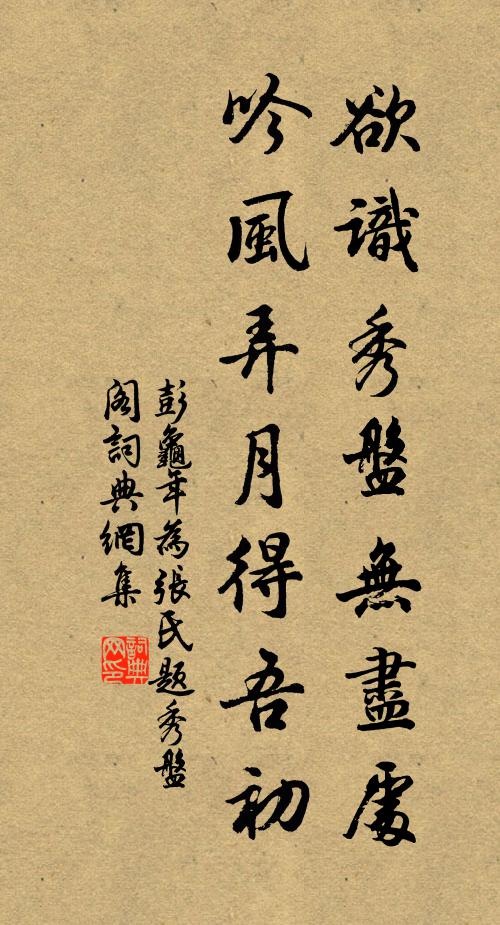 欲識秀盤無盡處
吟風弄月得吾初
彭龜年為張氏題秀盤
閣詞典網集
詞典
网印